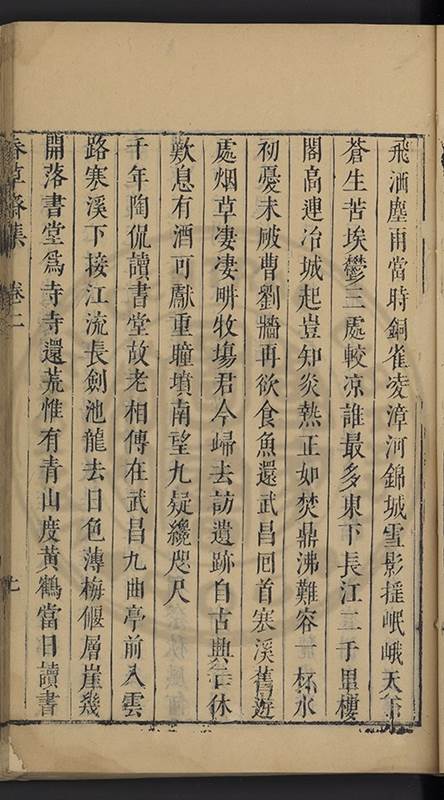 飛洒塵雨當時銅雀凌漳河錦城雪影摇岷峨天下
蒼生苦埃鬱三處較凉誰最多東下長江三千里樓
閣高連冶城起豈知炎熱正如焚鼎沸難容一杯水
初憂未殿曹劉牆再欲食魚還武昌囘首寒溪舊遊
處烟草凄凄畊牧塲君今歸去訪遺跡自古興亡休
歎息有酒可獻重瞳墳南望九疑纔咫尺
千年陶侃讀書堂故老相傳在武昌九曲亭前入雲
路寒溪下接江流長劍池龍去日色薄梅偃層崖幾
開落書堂爲寺寺還荒惟有青山度黄鶴當日讀書
春草齋集 卷二 七